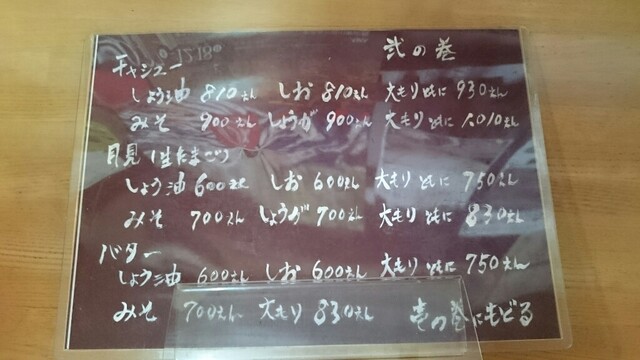 弐の巻
チャシュー
しょう油 810えん しお 810えん 大もり ともに 930えん
みそ 900えん しょうが 900えん 大もり ともに 1,010えん
月見（生たまご）
しょう油 600えん しお 600えん 大もり ともに 750えん
みそ 700えん しょうが 700えん 大もり ともに 830えん
バター
しょう油 600えん しお 600えん 大もり ともに 750えん
みそ 700えん 大もり 830えん 壱の巻にもどる